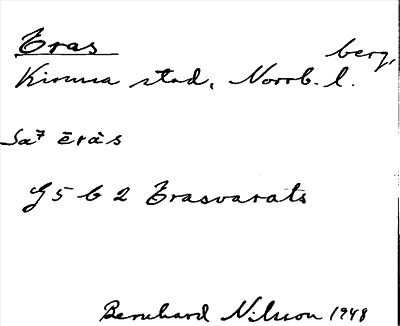 Eras berg,
Kiruna stad, Norrb. l.
Sa⁷ ērȧs
G 5 b 2 Erasvarats
Bernhard Nilsson 1948